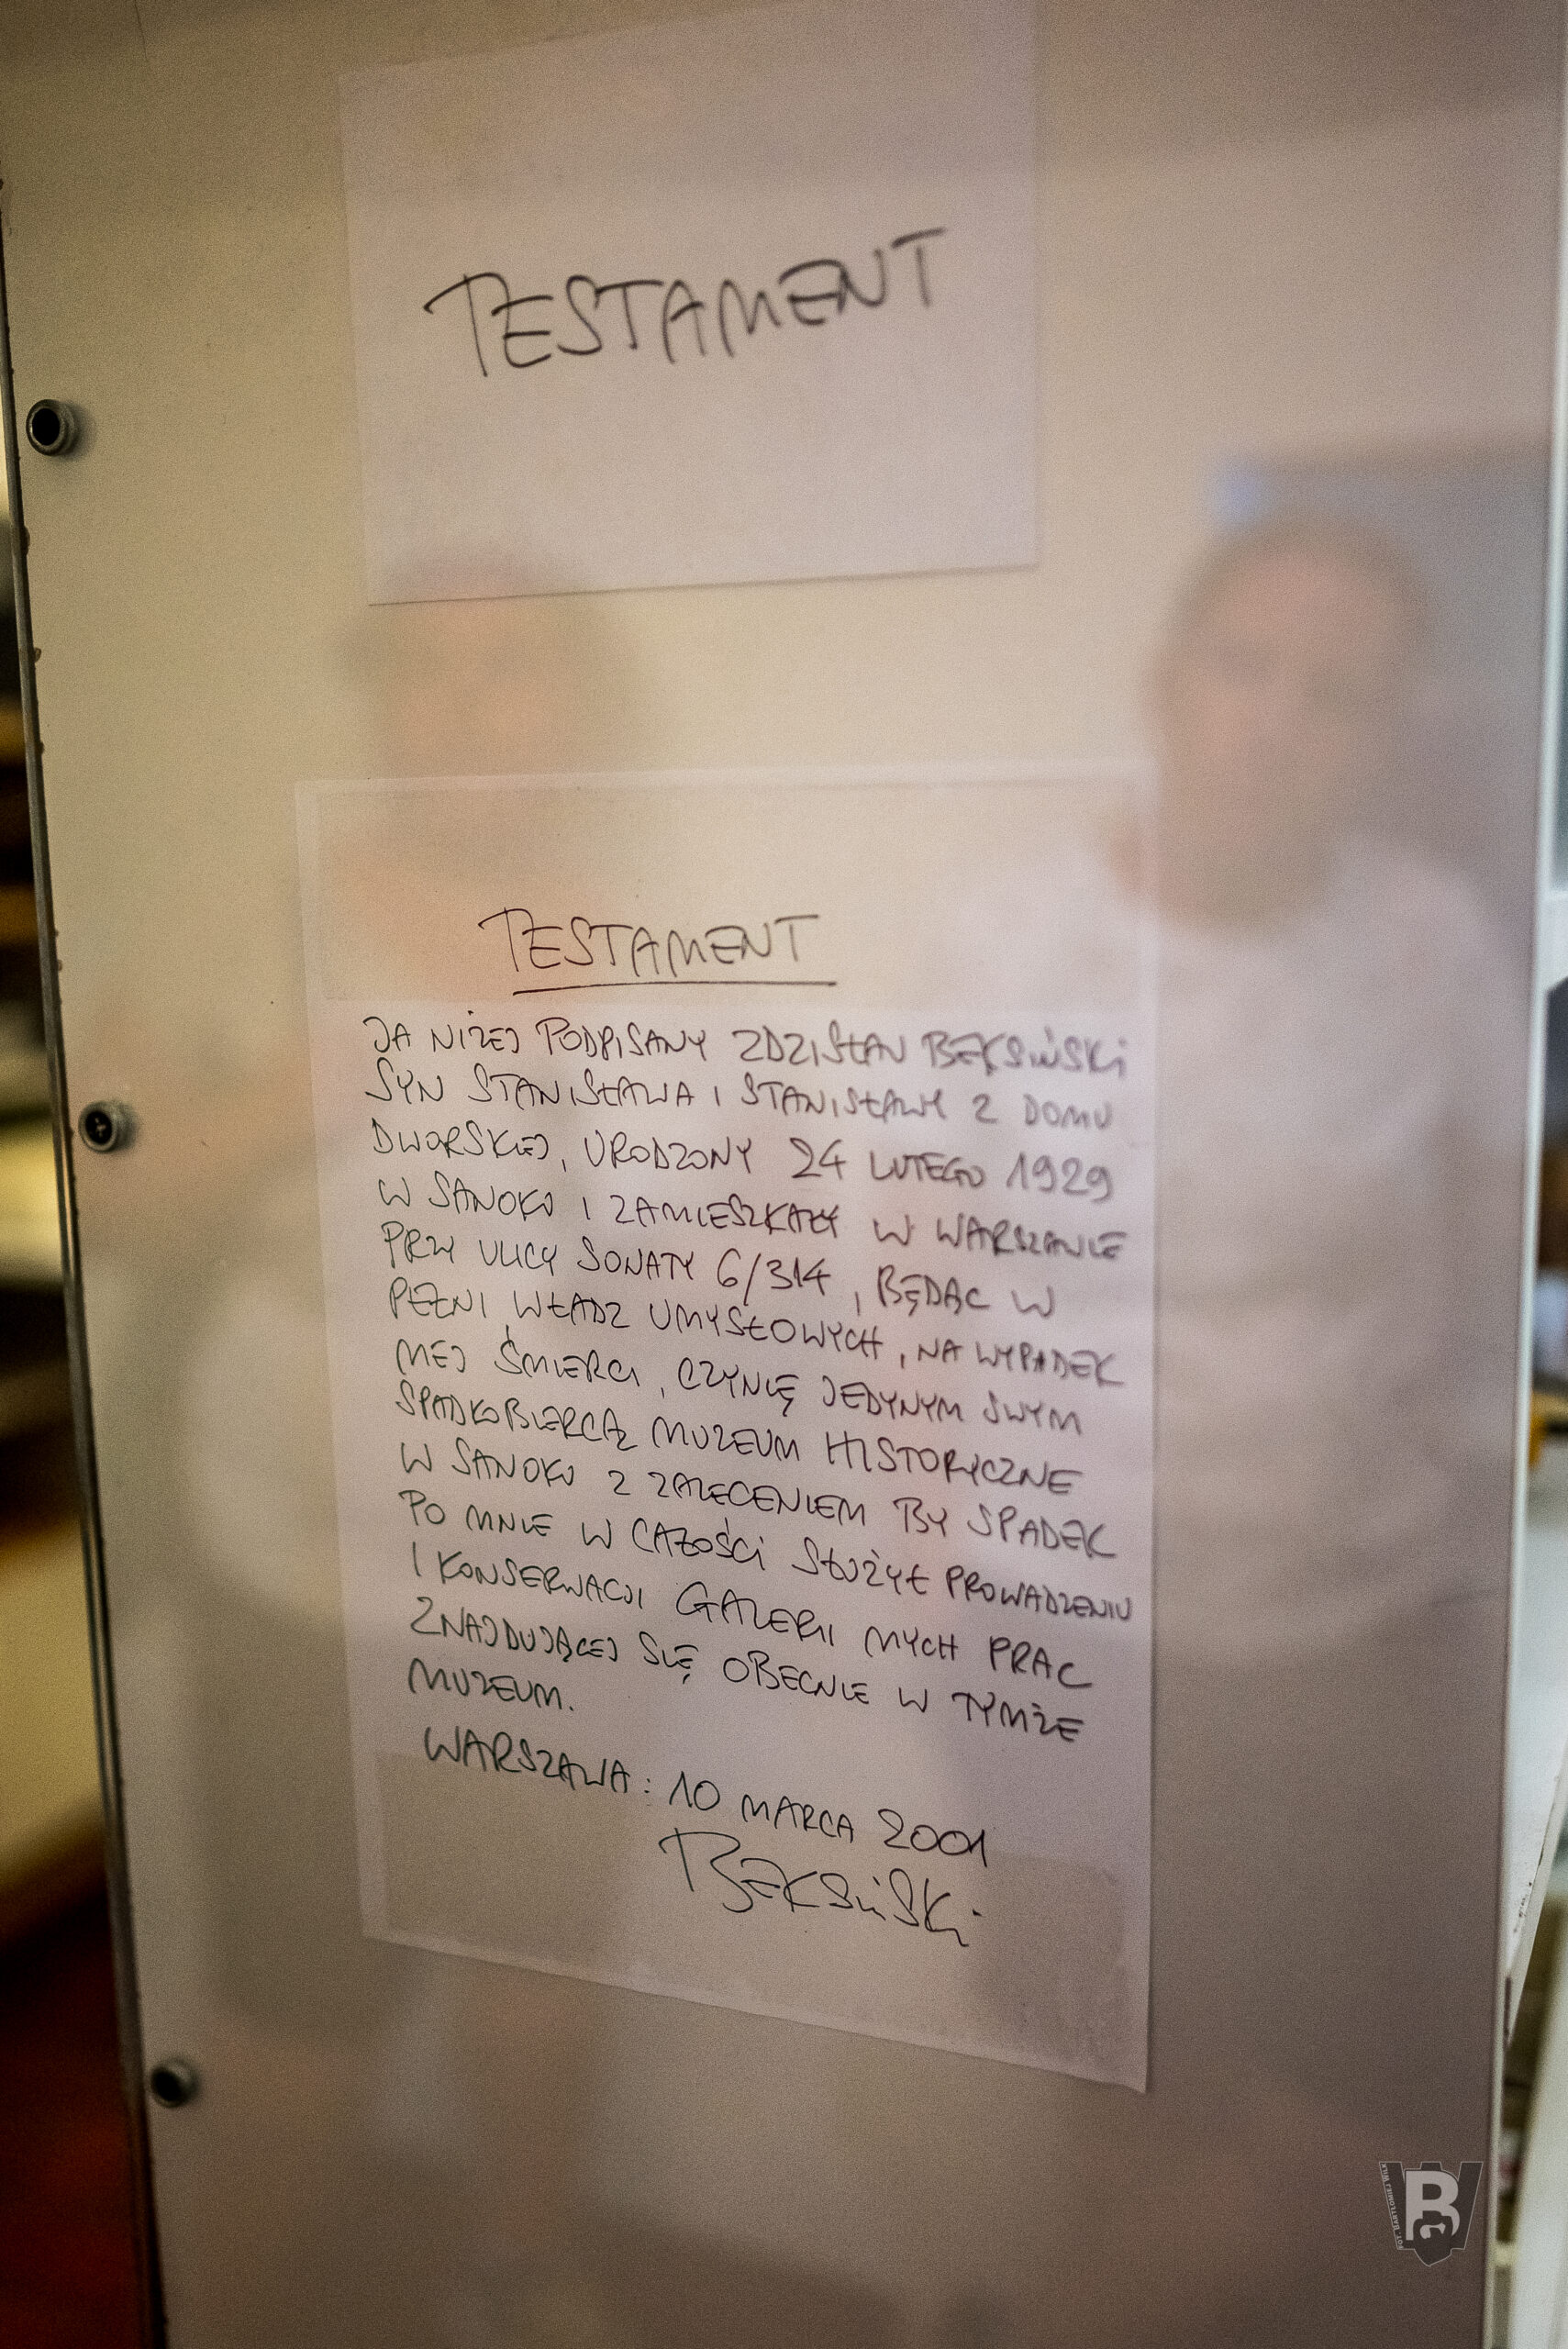 TESTAMENT
TESTAMENT
JA NIŻEJ PODPISANY ZDZISŁAW BEKSIŃSKI
SYN STANISŁAWA I STANISŁAWY Z DOMU
DWORSKIEJ, URODZONY 24 LUTEGO 1929
W SANOKU I ZAMIESZKAŁY W WARSZAWIE
PRZY ULICY SONATY 6/314, BĘDĄC W
PEŁNI WŁADZ UMYSŁOWYCH, NA WYPADEK
MEJ ŚMIERCI, CZYNIĘ JEDYNYM SWYM
SPADKOBIERCĄ MUZEUM HISTORYCZNE
W SANOKU Z ZALECENIEM BY SPADEK
PO MNIE W CAŁOŚCI SŁUŻYŁ PROWADZENIU
I KONSERWACJI GALERII MYCH PRAC
ZNAJDUJĄCEJ SIĘ OBECNIE W TYMŻE
MUZEUM.
WARSZAWA: 10 MARCA 2001
BEKSIŃSKI
FOT. BARTŁOMIEJ WILK
BW